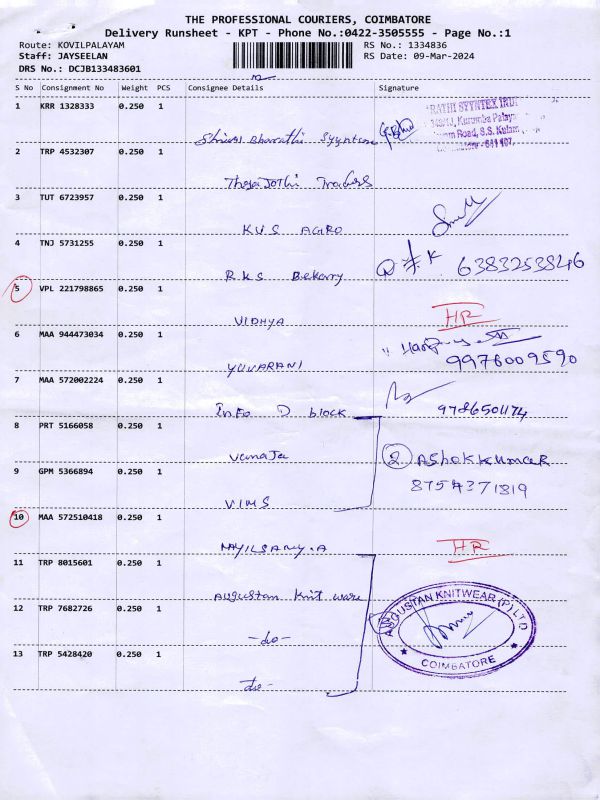 THE PROFESSIONAL COURIERS, COIMBATORE
Delivery Runsheet - KPT - Phone No.:0422-3505555 - Page No.:1
Route: KOVILPALAYAM RS No.: 1334836
Staff: JAYSEELAN RS Date: 09-Mar-2024
DRS No.: DCJB133483601
S No Consignment No Weight PCS Consignee Details Signature
1 KRR 1328333 0.250 1
Bharathi
2 TRP 4532307 0.250 1
Traders
3 TUT 6723957 0.250 1
KVS AGRO
4 TNJ 5731255 0.250 1
RKS Bekarry 6383253846
5 VPL 221798865 0.250 1 HR
VIDHYA
6 MAA 944473034 0.250 1
YUVARANI 9976009590
7 MAA 572002224 0.250 1
Info D block
8 PRT 5166058 0.250 1
Vanaja 2 Ashokkumar
9 GPM 5366894 0.250 1 8754371819
VIMS
10 MAA 572510418 0.250 1 HR
MAYILSAMY.A
11 TRP 8015601 0.250 1
Augustan Knit ware
12 TRP 7682726 0.250 1 AUGUSTAN KNITWEAR (P) LTD
-do- COIMBATORE
13 TRP 5428420 0.250 1
-do-